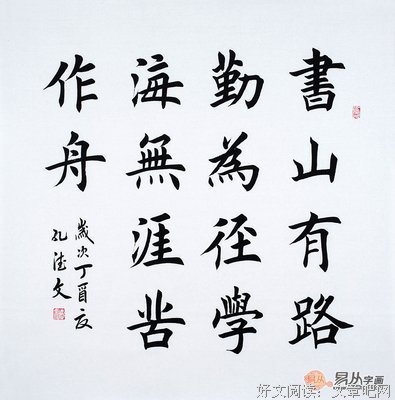 書山有路
勤為径學
海無涯苦
作舟
歲次丁酉夏
孔 文
易从字画
好文阅读：文章吧网